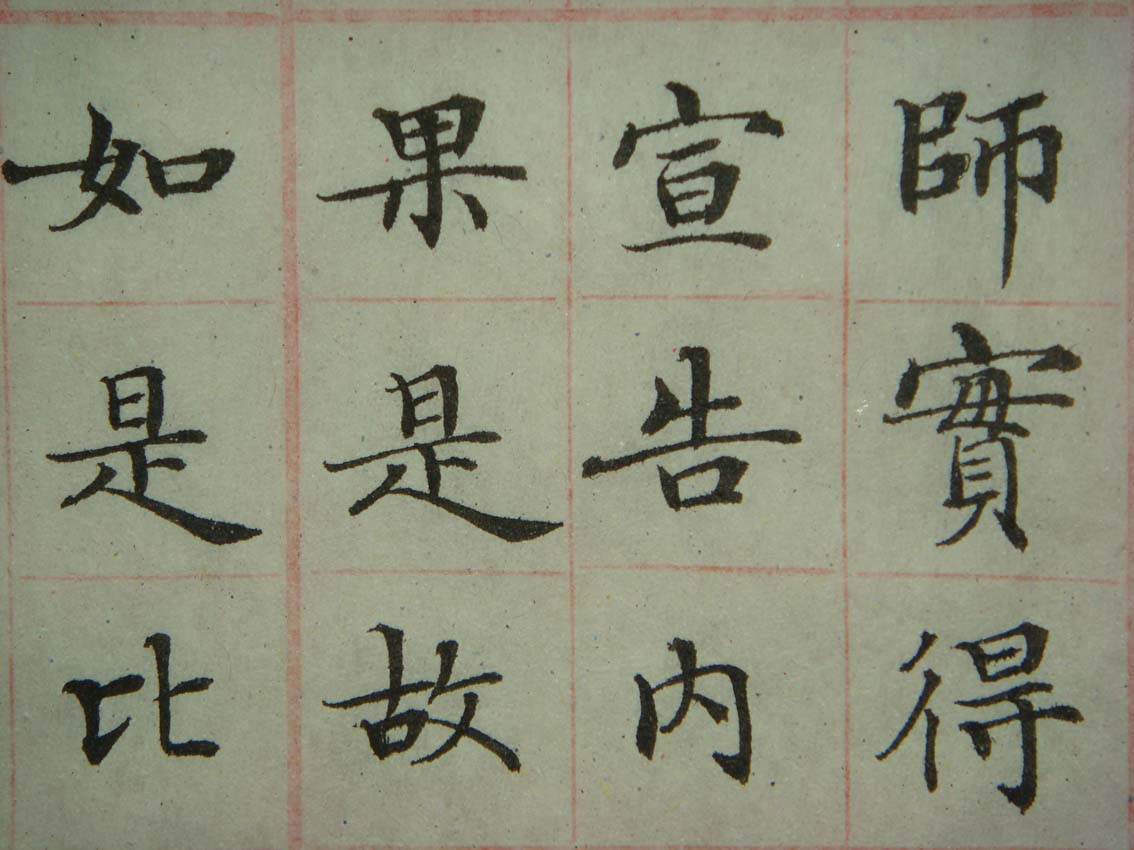 師實得
宣告内
果是故
如是比